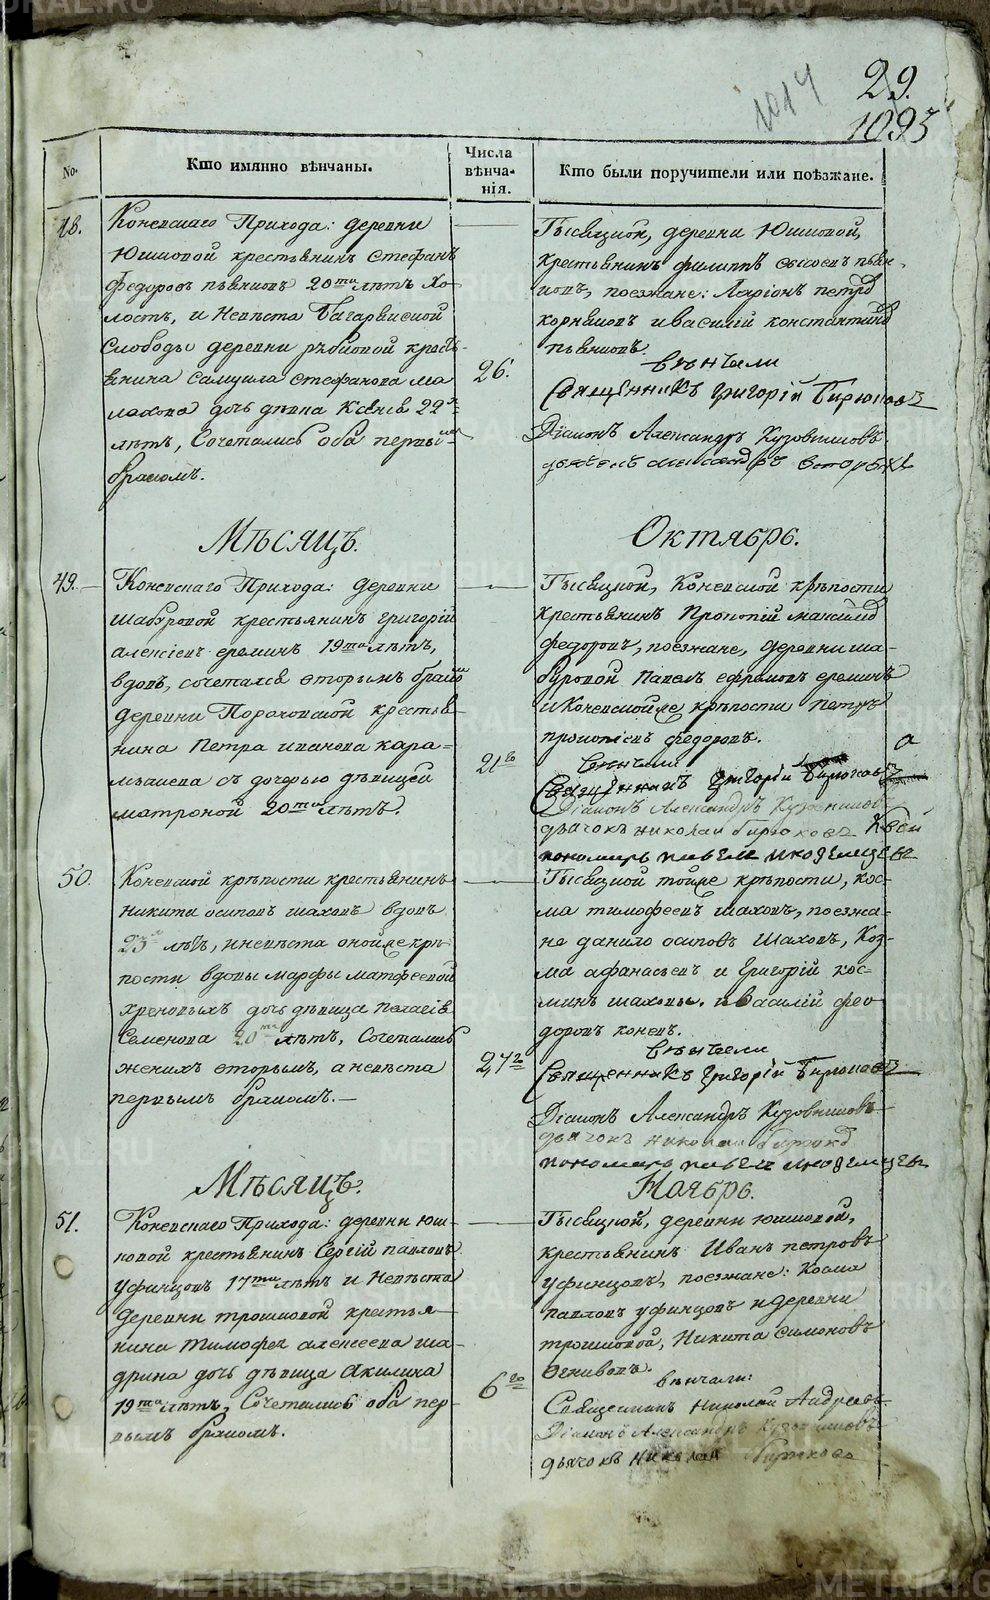 1014
29.
1093
№.
Кто имянно вѣнчаны.
Числа
вѣнча-
нія.
Кто были поручители или поѣзжане.
48.
Коневскаго Прихода: деревни
Юшковой крестьянинъ Стефанъ
Федоровъ пьянковъ 20ти лѣтъ Хо-
лостъ, и Невѣста Багарякской
Слободы деревни рѣбковой кресть-
янина Самуила Стефанова ма
лахова дочь дѣвка Ксенія 22х
лѣтъ, Сочетались оба первы
бракомъ.
26.
Тысяцкой, деревни Юшковой,
крестьянинъ филиппъ пьян-
ковъ, поезжане: Ларіонъ петровъ
корниловъ и василій константиновъ
пьянковъ.
вѣнчали
Священникъ григорій Бирюковъ
Діаконъ Александръ Кузовниковъ
Мѣсяцъ.
Октябрь.
49.
Коневскаго Прихода: деревни
шабуровой крестьянинъ григорій
алексіевъ ереминъ 19ти лѣтъ,
вдовъ, сочетался вторымъ бракомъ
деревни Пороховской крестья-
нина Петра иванова кара-
мышева съ дочерью дѣвицей
матроной 20ти лѣтъ.
21го
Тысяцкой, Коневской крѣпости
крестьянинъ Прокопій максимовъ
федоровъ, поезжане, деревни ша-
буровой павелъ ефремовъ ереминъ
и Коневской же крѣпости петръ
прокопіевъ федоровъ.
а
вѣнчали
Священникъ григорій Бирюковъ
Діаконъ Александръ Кузовниковъ
дьячокъ николай бирюковъ
пономарь павелъ инодемцевъ
50.
Коневской крѣпости крестьянинъ
никита осиповъ шаховъ вдовъ
23х лѣтъ, и невѣста оной же крѣ-
пости вдовы марфы матфеевой
хреновыхъ дочь дѣвица пелагія
Семенова 20ти лѣтъ, Сочетались
женихъ вторымъ, а невѣста
первымъ бракомъ.—
27г
Тысяцкой тойже крѣпости, кос-
ма тимофеевъ шаховъ, поезжа-
не данило осиповъ шаховъ, Коз-
ма афанасьевъ и григорій кос-
минъ шаховы. и василій фео
доровъ коневъ.
вѣнчали
Священникъ григорій Бирюковъ
Діаконъ Александръ Кузовниковъ
дьячокъ николай бирюковъ
пономарь павелъ инодемцевъ
Мѣсяцъ.
Ноябрь.
51.
Коневскаго Прихода: деревни юш-
ковой крестьянинъ Сергій павловъ
уфинцовъ 17ти лѣтъ и Невѣста
деревни трошковой крестья
нина тимофея алексеева ша-
дрина дочь дѣвица Акилина
19ти лѣтъ, Сочетались оба пер-
вымъ бракомъ.
6го
Тысяцкой, деревни юшковой,
крестьянинъ Иванъ петровъ
уфинцовъ, поезжане: Косма
павловъ уфинцовъ и деревни
трошковой, Никита Симоновъ
вѣнчали:
Священникъ Николай Андреевъ
Діаконъ Александръ Кузовниковъ
дьячокъ николай бирюковъ
METRIKI.GASU-URAL.RU